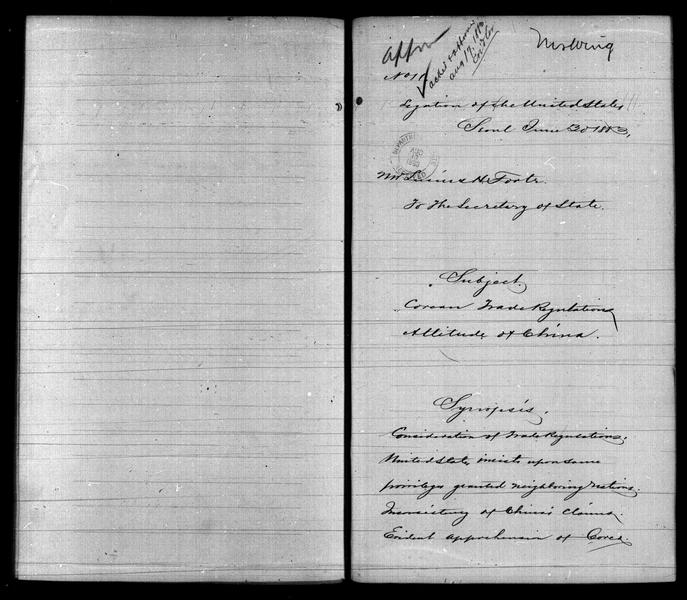 No 17
Legation of the United States
Seoul June 30 1883,
Mr Lucius H. Foote.
To The Secretary of State.
Subject.
Corean Trade Regulations
Attitude of China.
Synopsis.
Consideration of Trade Regulations.
United States insists upon same
privileges granted neighboring nations.
of China's Claims.
Evident apprehension of Corea.